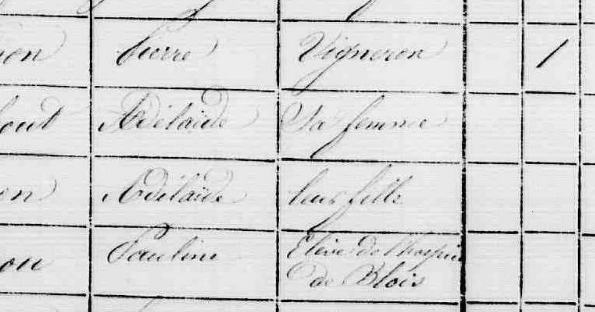 Pierre Vigneron 1
Adélaïde Sa femme
Adélaïde leur fille
Pauline Elève de l'hospice
de Blois